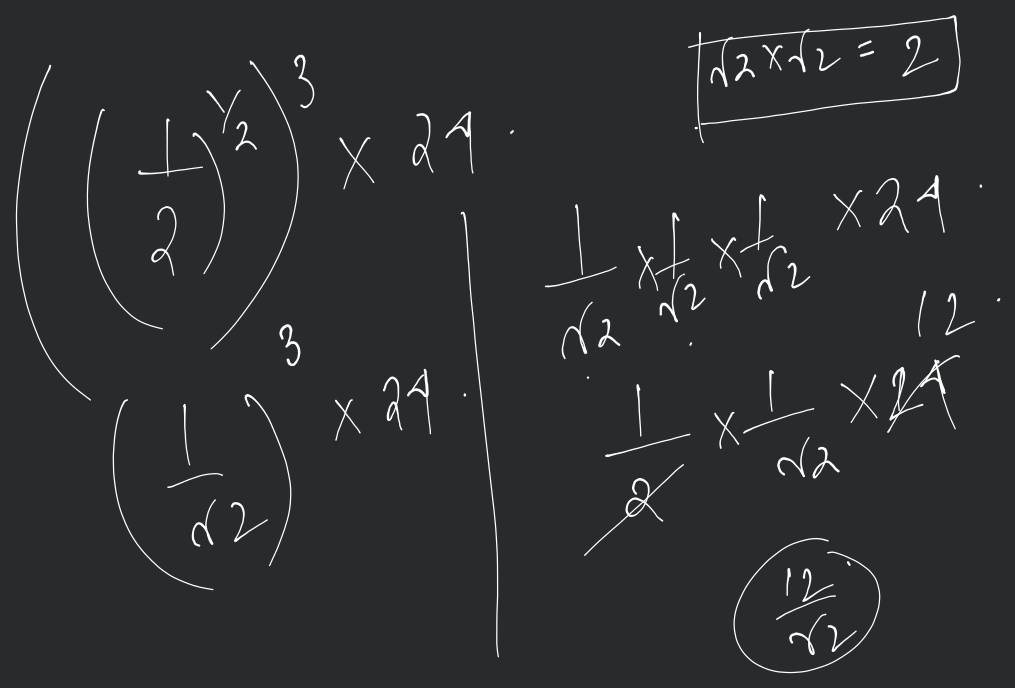 ((1/2)^1/2)^3 × 24.
(1/√2)^3 × 24.
√2×√2 = 2
1/√2 × 1/√2 × 1/√2 × 24.
12.
1/2 × 1/√2 × 24
12/√2